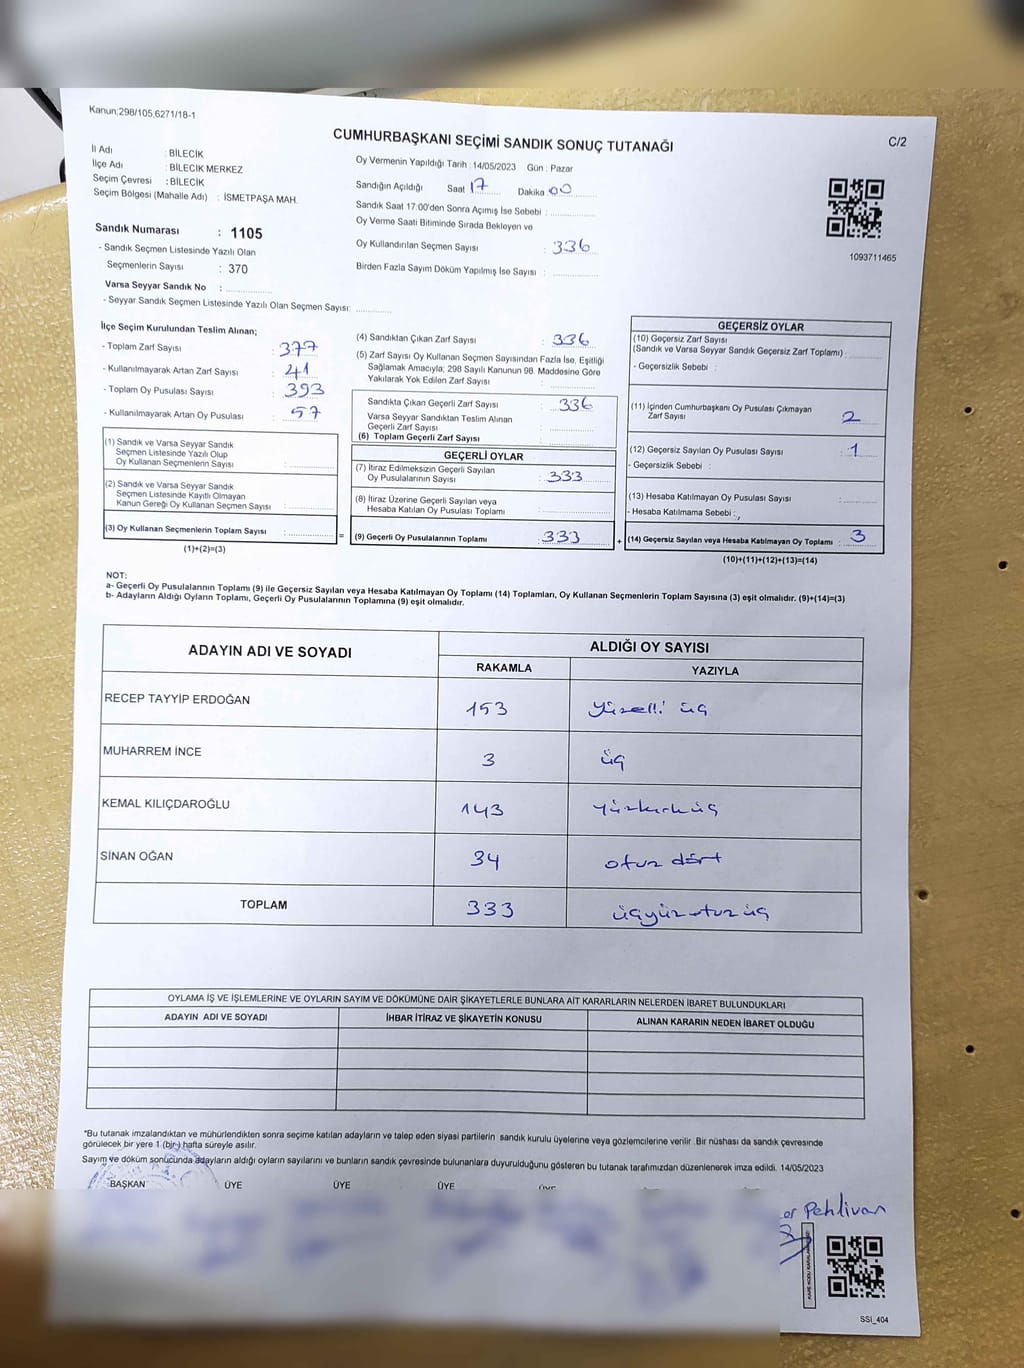 Kanun;298/105;6271/18-1
CUMHURBAŞKANI SEÇİMİ SANDIK SONUÇ TUTANAĞI
C/2
İl Adı : BİLECİK
İlçe Adı : BİLECİK MERKEZ
Seçim Çevresi : BİLECİK
Seçim Bölgesi (Mahalle Adı) : İSMETPAŞA MAH.
Sandık Numarası : 1105
- Sandık Seçmen Listesinde Yazılı Olan
Seçmenlerin Sayısı : 370
Varsa Seyyar Sandık No :
- Seyyar Sandık Seçmen Listesinde Yazılı Olan Seçmen Sayısı:
Oy Vermenin Yapıldığı Tarih : 14/05/2023 Gün : Pazar
Sandığın Açıldığı Saat 17 Dakika 00
Sandık Saat 17:00'den Sonra Açımış İse Sebebi :
Oy Verme Saati Bitiminde Sırada Bekleyen ve
Oy Kullandırılan Seçmen Sayısı : 336
Birden Fazla Sayım Döküm Yapılmış İse Sayısı :
1093711465
İlçe Seçim Kurulundan Teslim Alınan;
- Toplam Zarf Sayısı : 377
- Kullanılmayarak Artan Zarf Sayısı : 41
- Toplam Oy Pusulası Sayısı : 393
- Kullanılmayarak Artan Oy Pusulası : 57
(1) Sandık ve Varsa Seyyar Sandık
Seçmen Listesinde Yazılı Olup
Oy Kullanan Seçmenlerin Sayısı :
(2) Sandık ve Varsa Seyyar Sandık
Seçmen Listesinde Kayıtlı Olmayan
Kanun Gereği Oy Kullanan Seçmen Sayısı :
(3) Oy Kullanan Seçmenlerin Toplam Sayısı :
(1)+(2)=(3)
=
(4) Sandıktan Çıkan Zarf Sayısı : 336
(5) Zarf Sayısı Oy Kullanan Seçmen Sayısından Fazla İse, Eşitliği
Sağlamak Amacıyla; 298 Sayılı Kanunun 98. Maddesine Göre
Yakılarak Yok Edilen Zarf Sayısı :
Sandıkta Çıkan Geçerli Zarf Sayısı : 336
Varsa Seyyar Sandıktan Teslim Alınan
Geçerli Zarf Sayısı :
(6) Toplam Geçerli Zarf Sayısı :
GEÇERLİ OYLAR
(7) İtiraz Edilmeksizin Geçerli Sayılan
Oy Pusulalarının Sayısı : 333
(8) İtiraz Üzerine Geçerli Sayılan veya
Hesaba Katılan Oy Pusulası Toplamı :
(9) Geçerli Oy Pusulalarının Toplamı : 333
+
GEÇERSİZ OYLAR
(10) Geçersiz Zarf Sayısı
(Sandık ve Varsa Seyyar Sandık Geçersiz Zarf Toplamı) :
- Geçersizlik Sebebi :
(11) İçinden Cumhurbaşkanı Oy Pusulası Çıkmayan
Zarf Sayısı : 2
(12) Geçersiz Sayılan Oy Pusulası Sayısı : 1
- Geçersizlik Sebebi :
(13) Hesaba Katılmayan Oy Pusulası Sayısı :
- Hesaba Katılmama Sebebi :
(14) Geçersiz Sayılan veya Hesaba Katılmayan Oy Toplamı : 3
(10)+(11)+(12)+(13)=(14)
NOT:
a- Geçerli Oy Pusulalarının Toplamı (9) ile Geçersiz Sayılan veya Hesaba Katılmayan Oy Toplamı (14) Toplamları, Oy Kullanan Seçmenlerin Toplam Sayısına (3) eşit olmalıdır. (9)+(14)=(3)
b- Adayların Aldığı Oyların Toplamı, Geçerli Oy Pusulalarının Toplamına (9) eşit olmalıdır.
ADAYIN ADI VE SOYADI
ALDIĞI OY SAYISI
RAKAMLA YAZIYLA
RECEP TAYYİP ERDOĞAN 153 yüzelli üç
MUHARREM İNCE 3 üç
KEMAL KILIÇDAROĞLU 143 yüzkırküç
SİNAN OĞAN 34 otuz dört
TOPLAM 333 üçyüzotuz üç
OYLAMA İŞ VE İŞLEMLERİNE VE OYLARIN SAYIM VE DÖKÜMÜNE DAİR ŞİKAYETLERLE BUNLARA AİT KARARLARIN NELERDEN İBARET BULUNDUKLARI
ADAYIN ADI VE SOYADI İHBAR İTİRAZ VE ŞİKAYETİN KONUSU ALINAN KARARIN NEDEN İBARET OLDUĞU
*Bu tutanak imzalandıktan ve mühürlendikten sonra seçime katılan adayların ve talep eden siyasi partilerin sandık kurulu üyelerine veya gözlemcilerine verilir. Bir nüshası da sandık çevresinde
görülecek bir yere 1 (bir) hafta süreyle asılır.
Sayım ve döküm sonucunda adayların aldığı oyların sayılarını ve bunların sandık çevresinde bulunanlara duyurulduğunu gösteren bu tutanak tarafımızdan düzenlenerek imza edildi. 14/05/2023
BAŞKAN ÜYE ÜYE ÜYE
Pehlivan
SSI_404